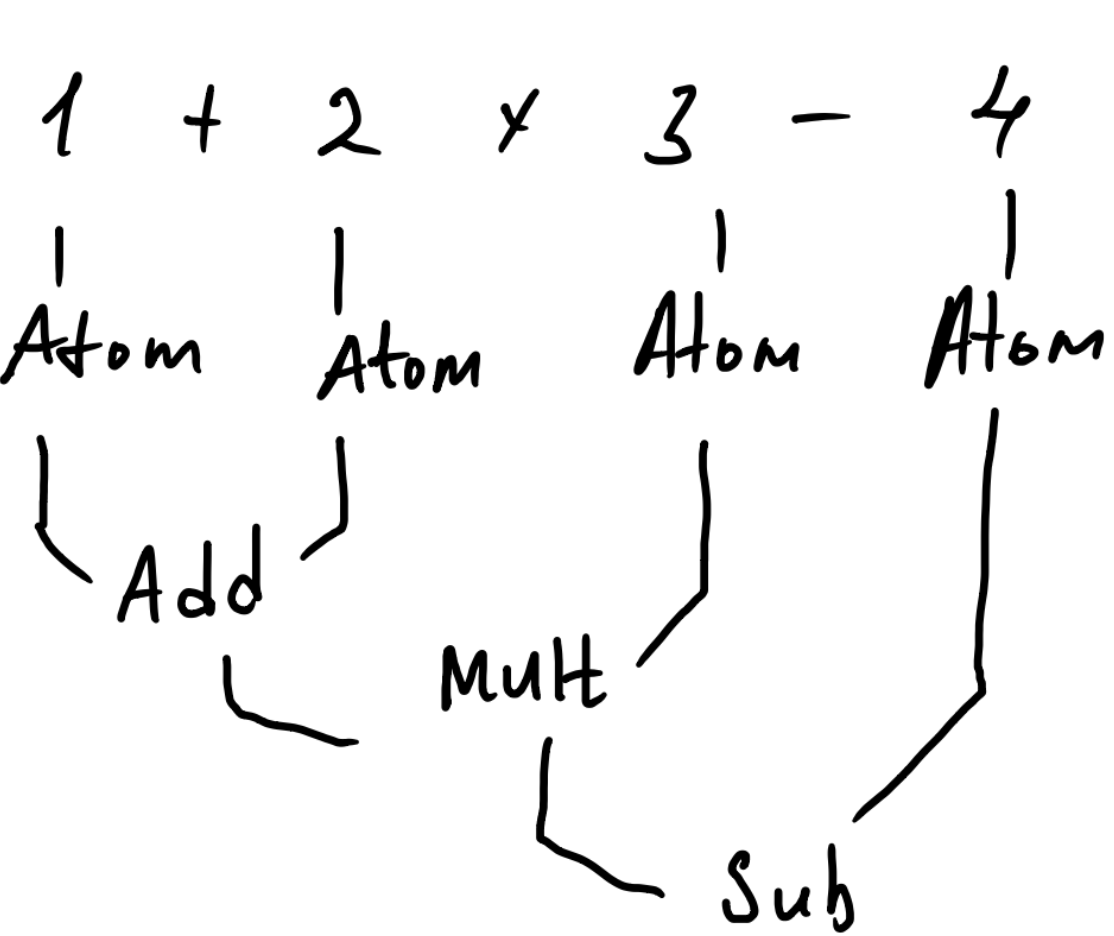 1 + 2 × 3 - 4
Atom Atom Atom Atom
Add
Mult
Sub